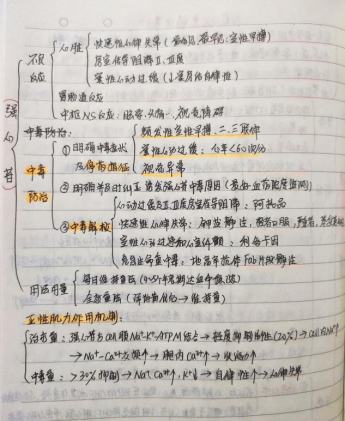 强心苷
不良反应
心脏
快速性心律失常（最多见、最早见：室性早搏）
房室传导阻滞Ⅰ、Ⅱ、Ⅲ度
窦性心动过缓（↓窦房结自律性）
胃肠道反应
中枢NS反应：眩晕、头痛、视觉障碍
中毒防治
中毒防治：
①明确中毒先兆及停药指征
频发性室性早搏、二、三联律
窦性心动过缓：心率<60次/分
视色异常
②明确并及时纠正诱发强心苷中毒原因
③中毒解救
心动过缓及Ⅰ、Ⅱ度房室传导阻滞：阿托品
快速性心律失常：钾盐静注，轻者口服
室性心动过速和心室纤颤：利多卡因
危及生命重中毒：地高辛抗体Fab片段静注
用法用量
每日维持量法
全效量法
正性肌力作用机制：
治疗量：强心苷与cell膜Na⁺-K⁺-ATP酶结合→轻度抑制活性（20%）→cell内Na⁺↑
→Na⁺-Ca²⁺交换↑→胞内Ca²⁺↑→收缩力↑
中毒量：>30%抑制→Na⁺、Ca²⁺↑，K⁺↓→自律性↑→心律失常